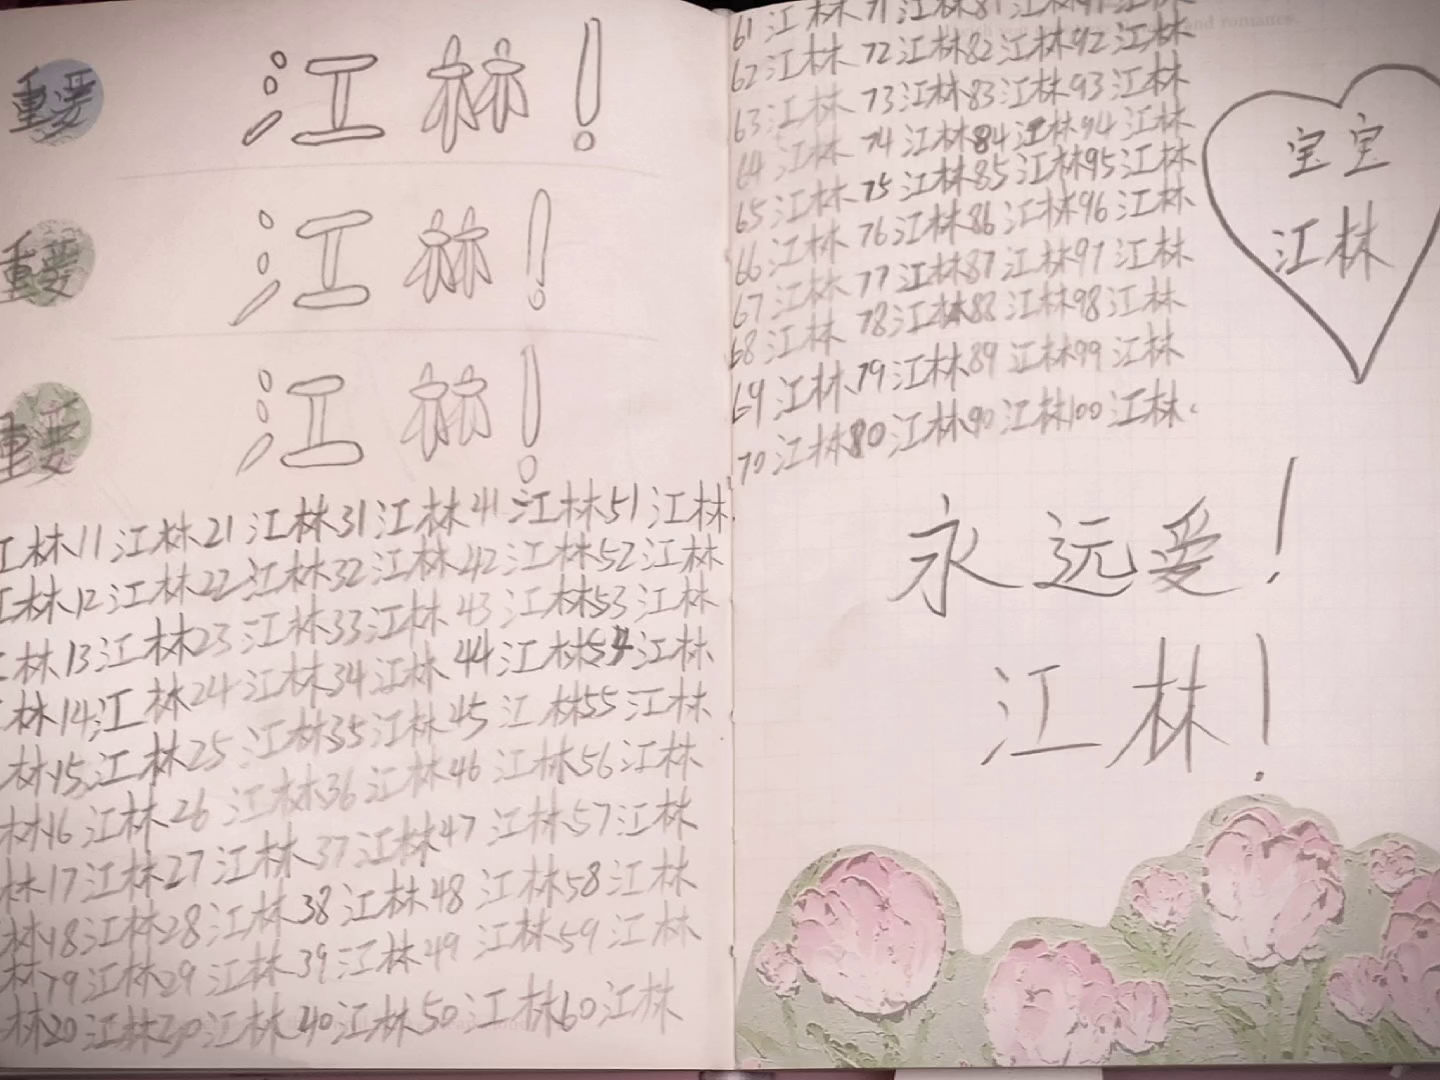 重要 江林!
重要 江林!
重要 江林!
江林 11 江林 21 江林 31 江林 41 江林 51 江林
江林 12 江林 22 江林 32 江林 42 江林 52 江林
林 13 江林 23 江林 33 江林 43 江林 53 江林
林 14 江林 24 江林 34 江林 44 江林 54 江林
林 15 江林 25 江林 35 江林 45 江林 55 江林
林 16 江林 26 江林 36 江林 46 江林 56 江林
林 17 江林 27 江林 37 江林 47 江林 57 江林
林 18 江林 28 江林 38 江林 48 江林 58 江林
林 19 江林 29 江林 39 江林 49 江林 59 江林
林 20 江林 30 江林 40 江林 50 江林 60 江林
61 江林 71 江林 81 江林 91 江林
62 江林 72 江林 82 江林 92 江林
63 江林 73 江林 83 江林 93 江林
64 江林 74 江林 84 江林 94 江林
65 江林 75 江林 85 江林 95 江林
66 江林 76 江林 86 江林 96 江林
67 江林 77 江林 87 江林 97 江林
68 江林 78 江林 88 江林 98 江林
69 江林 79 江林 89 江林 99 江林
70 江林 80 江林 90 江林 100 江林.
and romance.
宝宝
江林
永远爱!
江林!